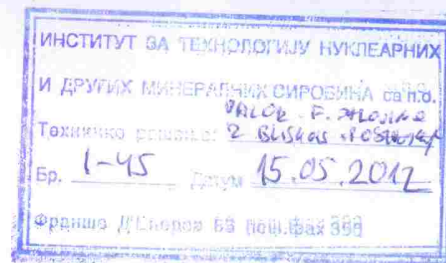 ИНСТИТУТ ЗА ТЕХНОЛОГИЈУ НУКЛЕАРНИХ
И ДРУГИХ МИНЕРАЛНИХ СИРОВИНА са п.о.
Техничко решење:
Бр. 1-45 Датум 15.05.2012
Франше Д'Епереа 86 пош.фах